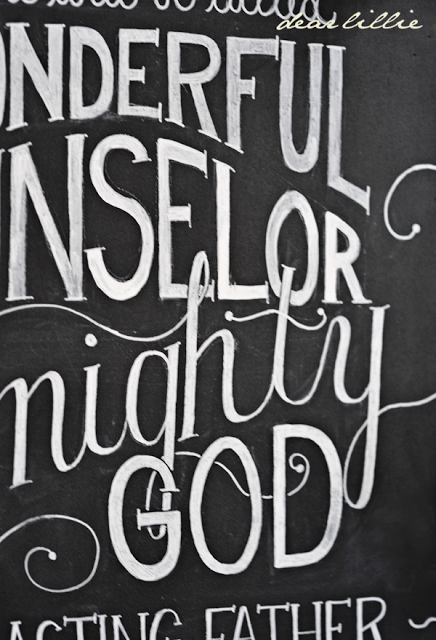 dear lillie
ONDERFUL
UNSELOR
mighty
GOD
ASTING FATHER ~